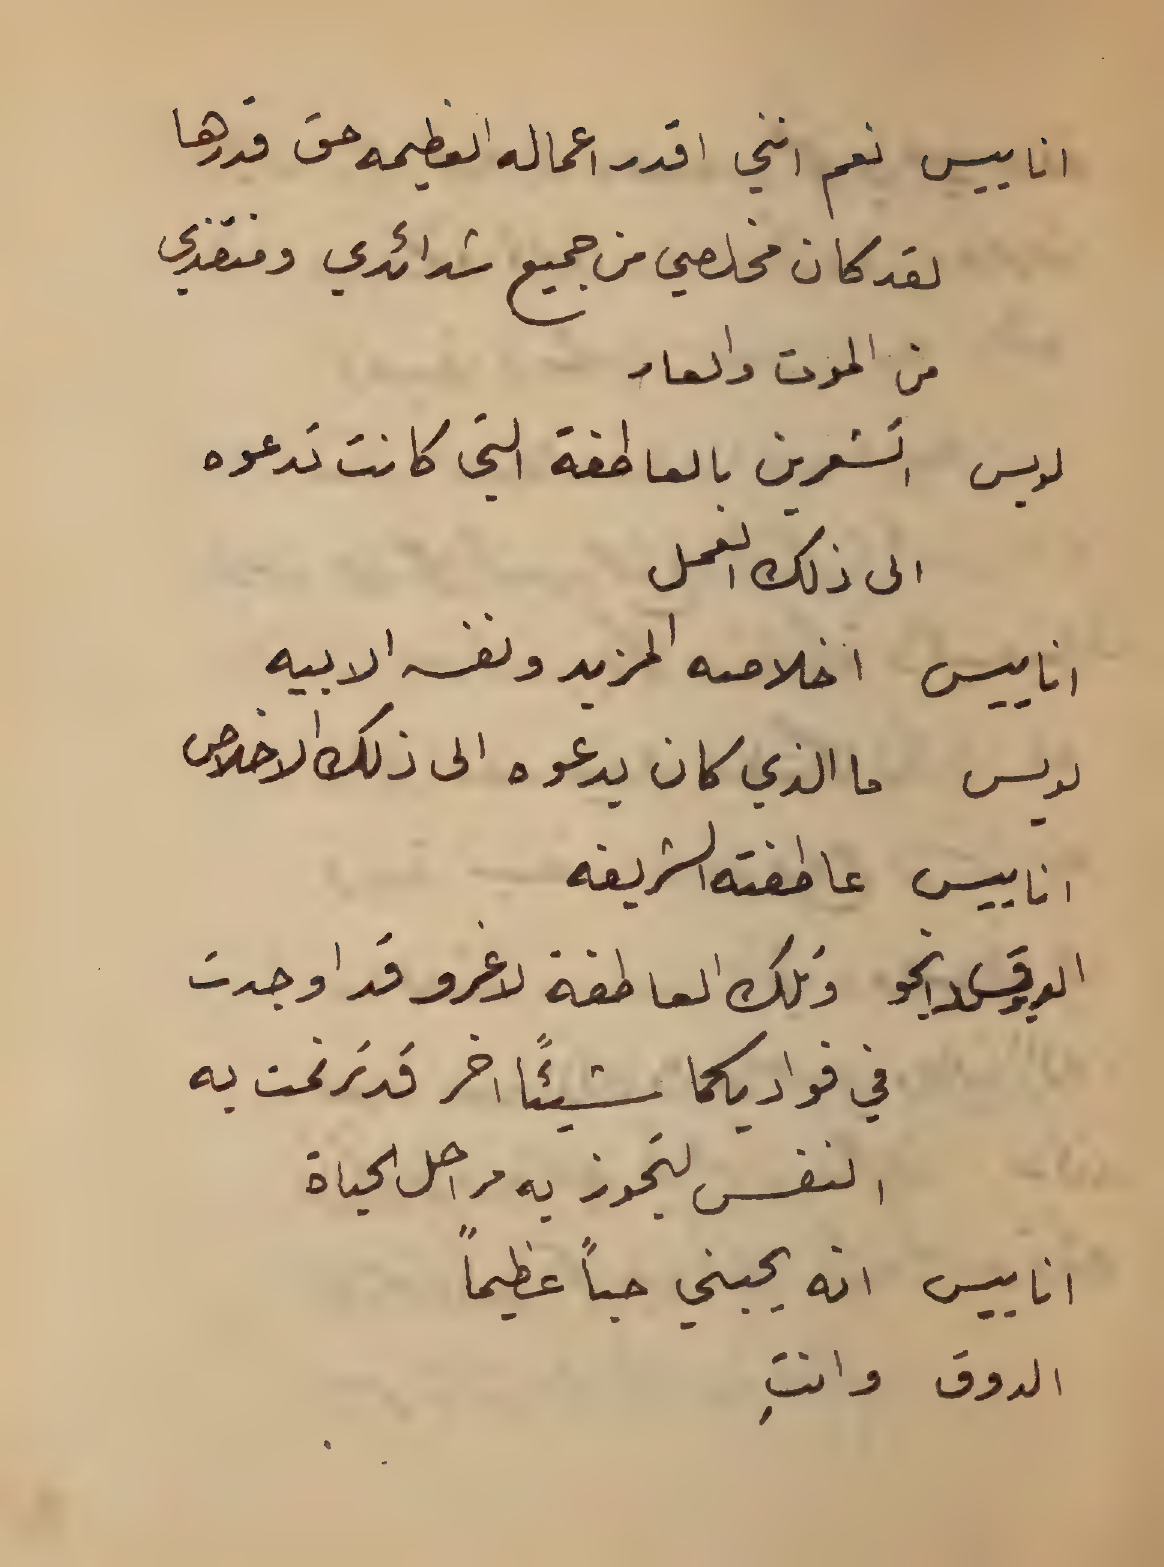 اناييس نعم انني اقدر اعماله العظيمه حق قدرها
لقد كان مخلصي من جميع شدائدي ومنقذي
من الموت والعار
لويس اتشعرين بالعاطفة التي كانت تدعوه
الى ذلك العمل
اناييس اخلاصه المزيد ونفسه الابيه
لويس ما الذي كان يدعوه الى ذلك الاخلاص
اناييس عاطفته الشريفه
وتلك العاطفة لا غرو قد اوجدت
في فواديكما شيئًا اخر قد ترنحت به
النفس لتجوز به مراحل الحياة
اناييس انه يحبني حباً عظيماً
الدوق وانتِ